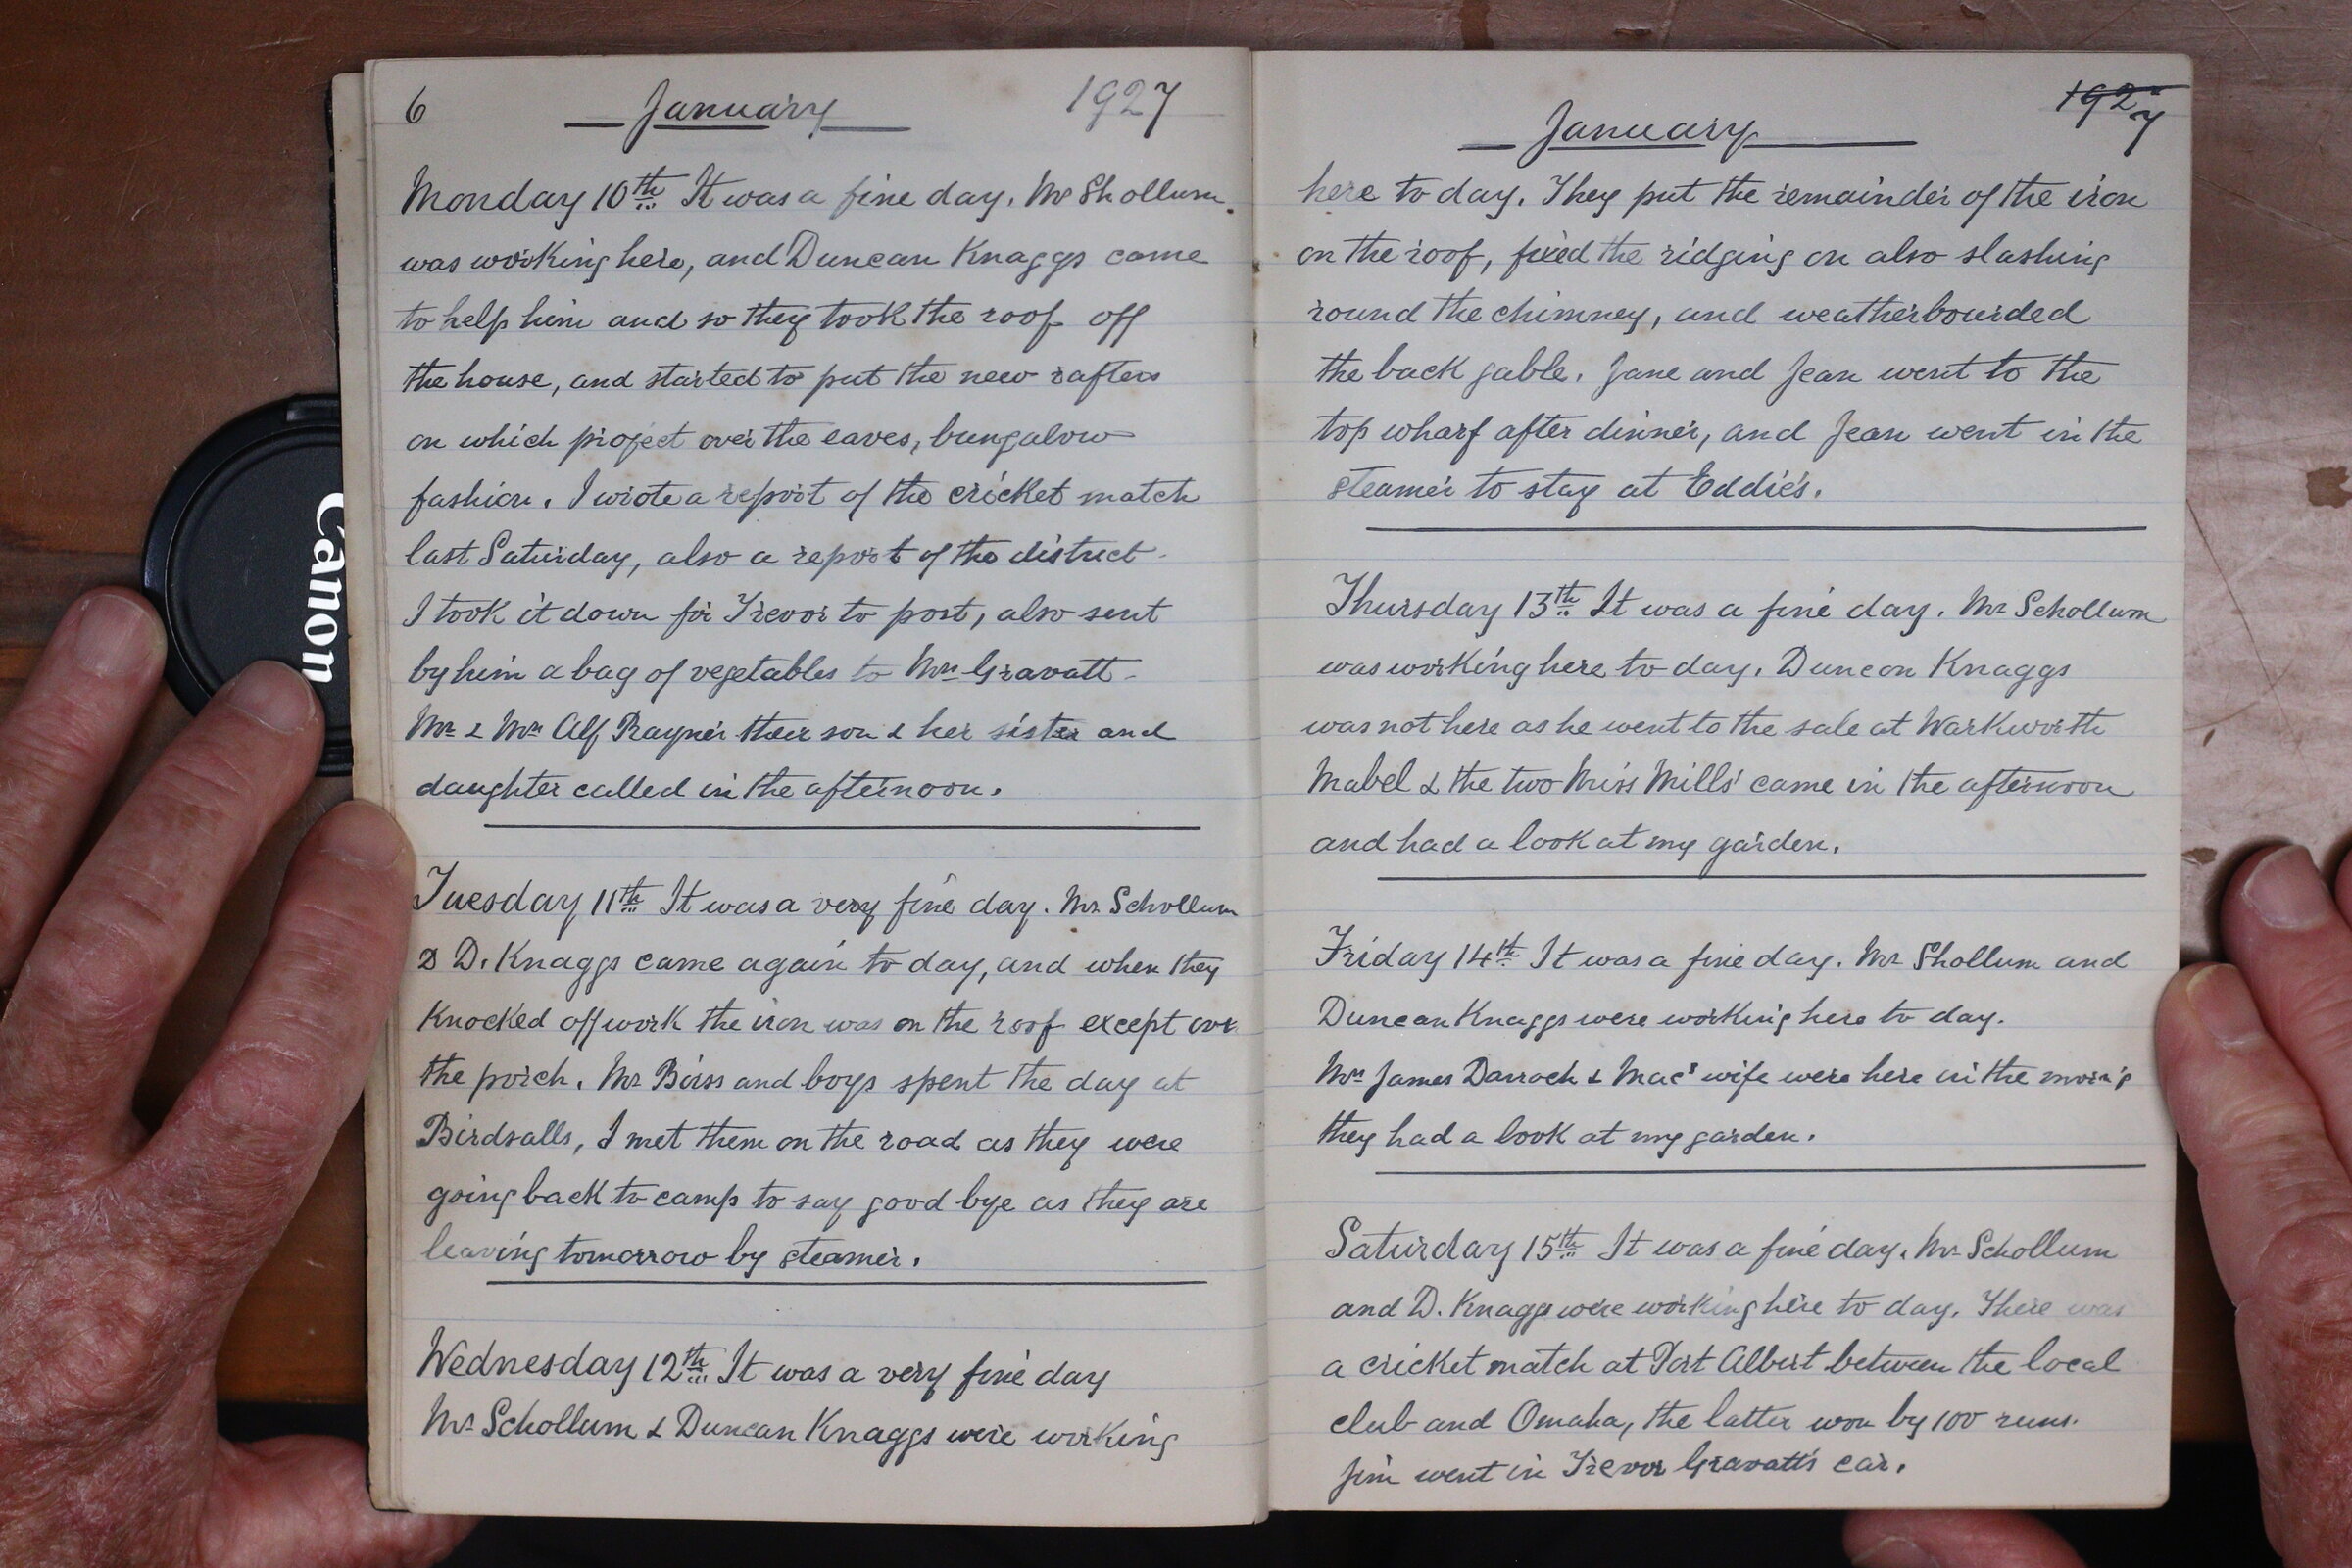 6 January 1927
Monday 10th It was a fine day. Mr Shollum
was working here, and Duncan Knaggs came
to help him and so they took the roof off
the house, and started to put the new rafters
on which project over the eaves, bungalow
fashion. I wrote a report of the cricket match
last Saturday, also a report of the district.
I took it down for Trevor to post, also sent
by him a bag of vegetables to Mrs Gravatt.
Mr & Mrs Alf Rayner their son & her sister and
daughter called in the afternoon.
Tuesday 11th It was a very fine day. Mr Schollum
& D. Knaggs came again to day, and when they
Knocked off work the iron was on the roof except over
the porch. Mr Biss and boys spent the day at
Birdsalls, I met them on the road as they were
going back to camp to say good bye as they are
leaving tomorrow by steamer.
Wednesday 12th It was a very fine day
Mr Schollum & Duncan Knaggs were working
1927
January
here to day. They put the remainder of the iron
on the roof, fixed the ridging on also slashing
round the chimney, and weatherbourded
the back gable. Jane and Jean went to the
top wharf after dinner, and Jean went in the
steamer to stay at Eddie's.
Thursday 13th It was a fine day. Mr Schollum
was working here to day. Duncan Knaggs
was not here as he went to the sale at Warkworth
Mabel & the two Miss Mills' came in the afternoon
and had a look at my garden.
Friday 14th It was a fine day. Mr Shollum and
Duncan Knaggs were working here to day.
Mrs James Darroch & Mac's wife were here in the morn'g
they had a look at my garden.
Saturday 15th It was a fine day. Mr Schollum
and D. Knaggs were working here to day. There was
a cricket match at Port Albert between the local
club and Omaha, the latter won by 100 runs.
Jim went in Trevor Gravatt's car.
Canon